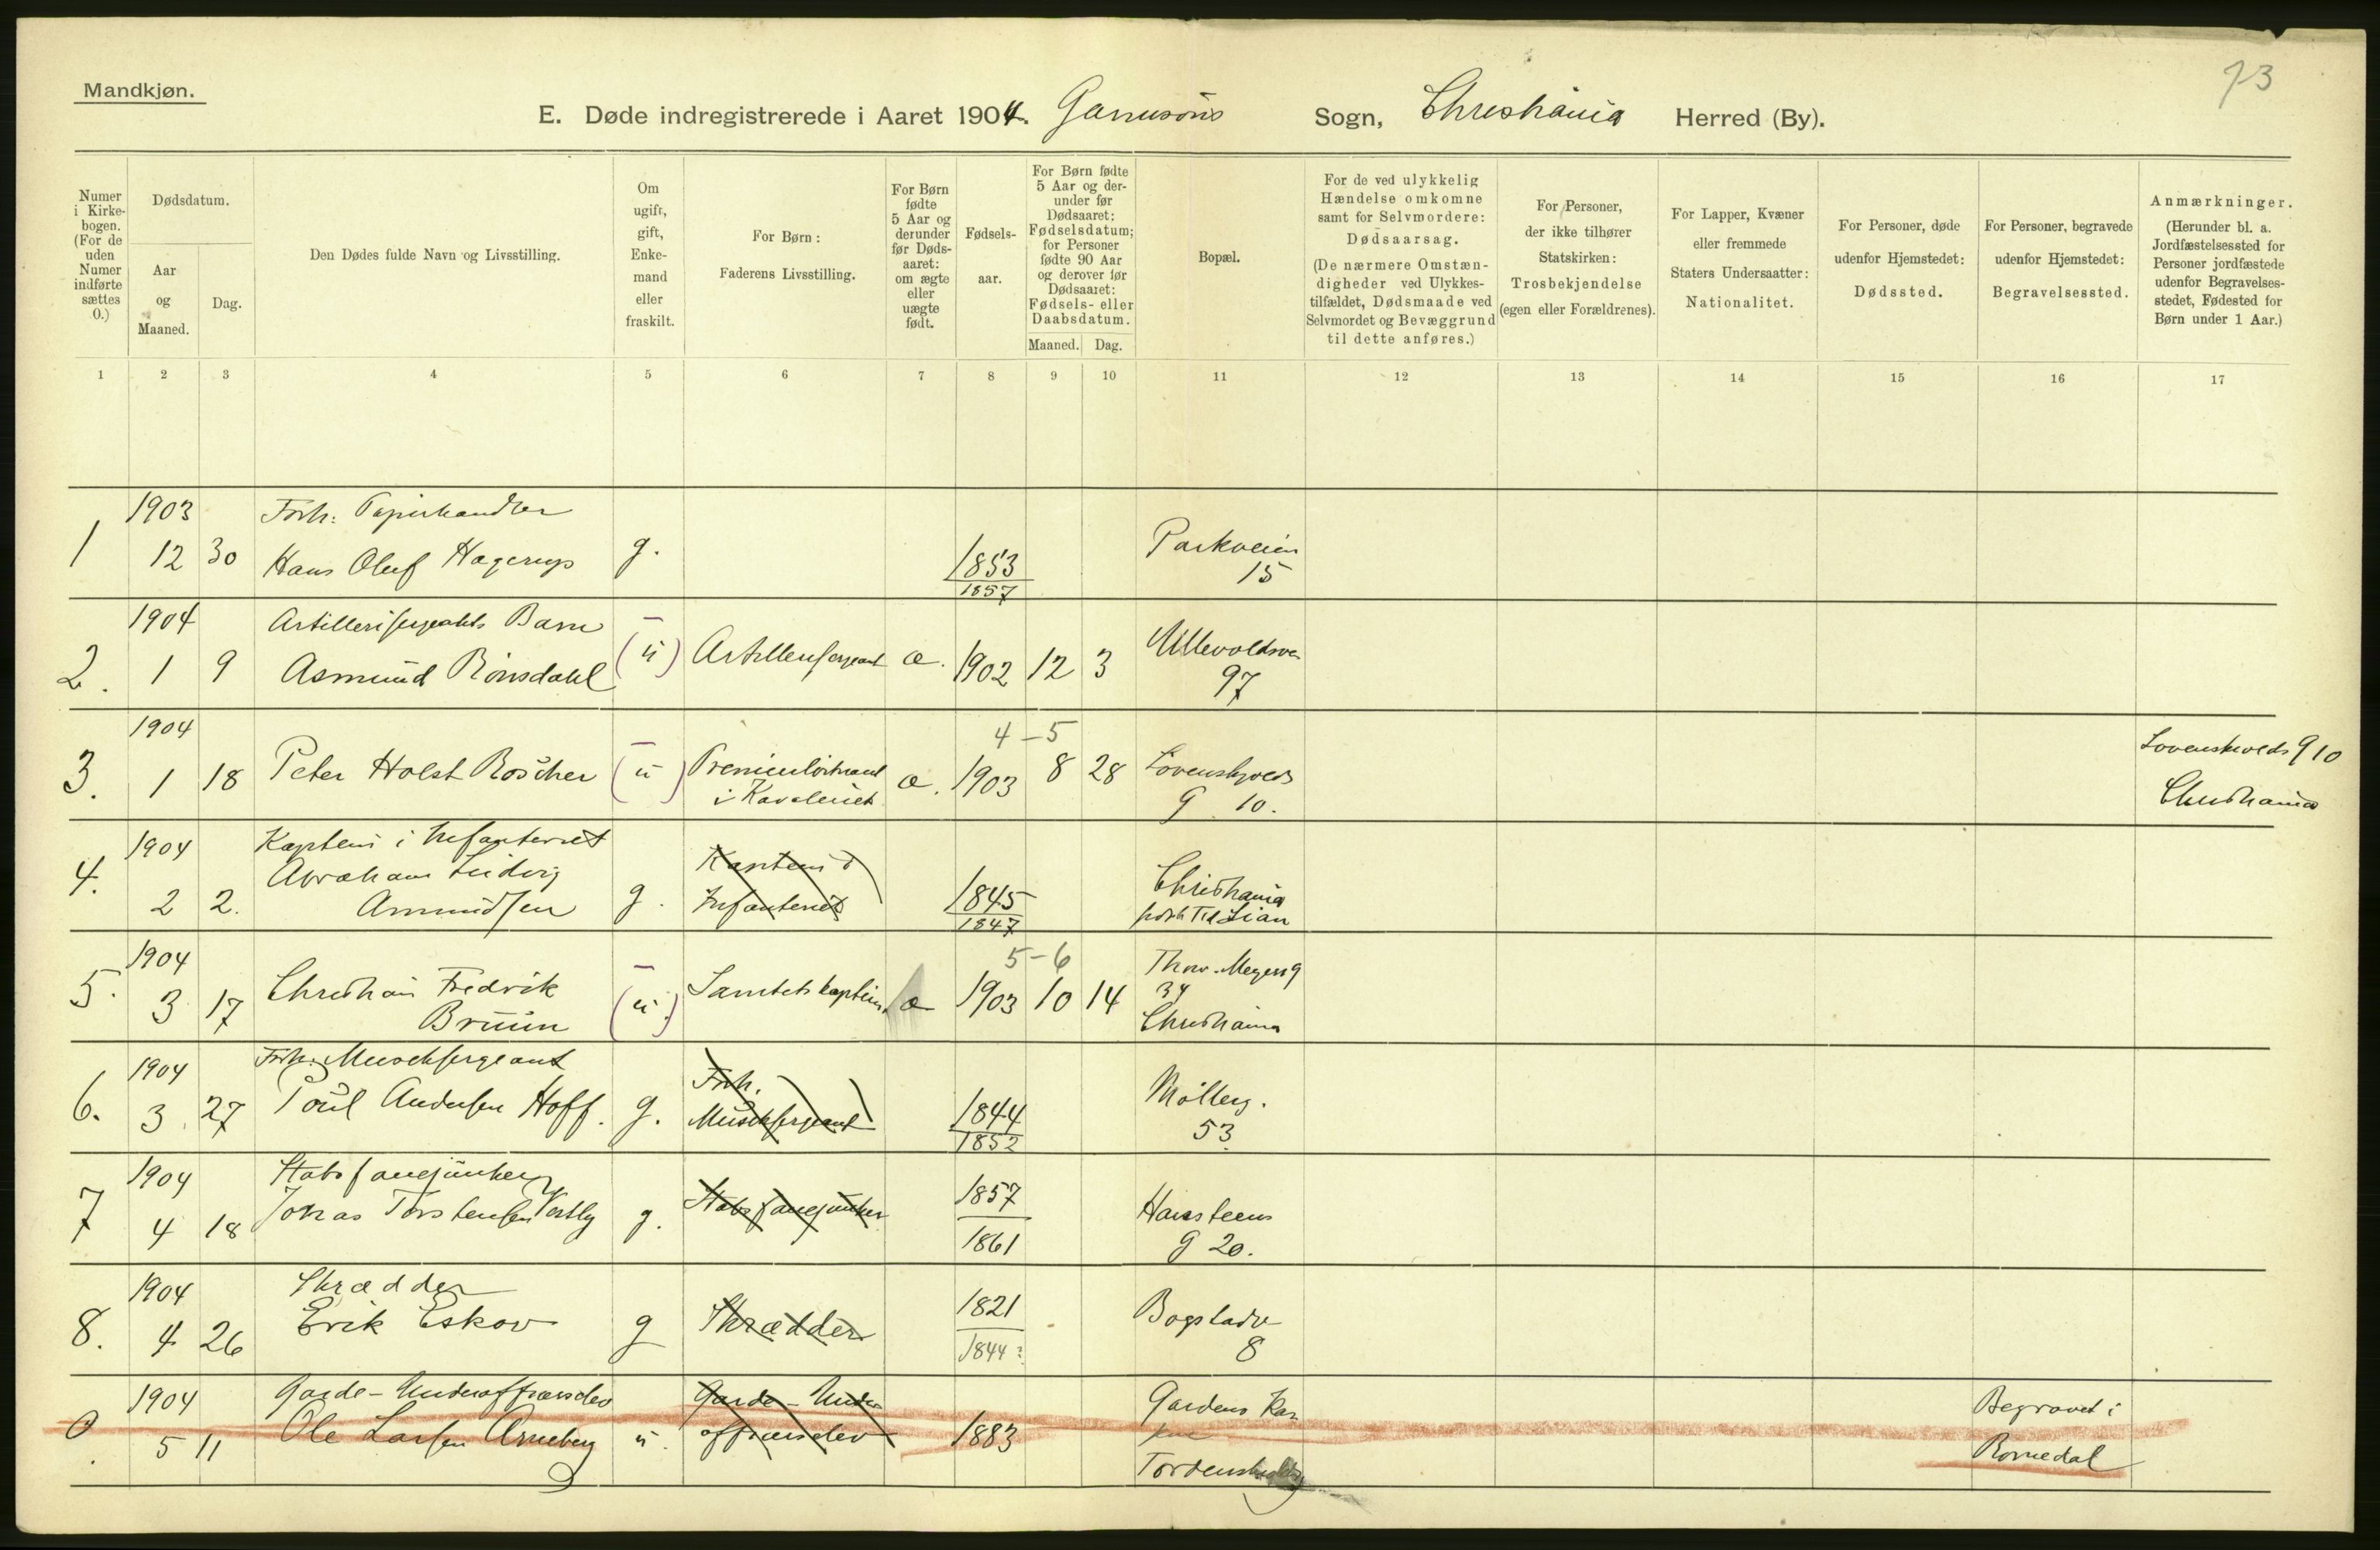 73
Mandkjøn.
E. Døde indregistrerede i Aaret 1904. Garnisons Sogn, Christiania Herred (By).
Numer i Kirkebogen. (For de uden Numer indførte sættes 0.)
Dødsdatum.
Aar og Maaned.
Dag.
Den Dødes fulde Navn og Livsstilling.
Om ugift, gift, Enkemand eller fraskilt.
For Børn: Faderens Livsstilling.
For Børn fødte 5 Aar og derunder før Dødsaaret: om ægte eller uægte født.
Fødselsaar.
For Børn fødte 5 Aar og derunder før Dødsaaret: Fødselsdatum; for Personer fødte 90 Aar og derover før Dødsaaret: Fødsels- eller Daabsdatum.
Maaned. Dag.
Bopæl.
For de ved ulykkelig Hændelse omkomne samt for Selvmordere: Dødsaarsag. (De nærmere Omstændigheder ved Ulykkestilfældet, Dødsmaade ved Selvmordet og Bevæggrund til dette anføres.)
For Personer, der ikke tilhører Statskirken: Trosbekjendelse (egen eller Forældrenes).
For Lapper, Kvæner eller fremmede Staters Undersaatter: Nationalitet.
For Personer, døde udenfor Hjemstedet: Dødssted.
For Personer, begravede udenfor Hjemstedet: Begravelsessted.
Anmærkninger. (Herunder bl. a. Jordfæstelsessted for Personer jordfæstede udenfor Begravelsesstedet, Fødested for Børn under 1 Aar.)
1 2 3 4 5 6 7 8 9 10 11 12 13 14 15 16 17
1903 Forh. Papirhandler
1 12 30 Hans Oluf Hagerup g. 1853 Parkveien
1857 15
1904 Artillerisergeants Barn
2. 1 9 Asmund Rönsdahl (ü) Artillerisergeant æ. 1902 12 3 Ullevoldsve
97
1904 4-5 Lovenskiolds g 10
3. 1 18 Peter Holst Roscher (ü) Premierløitnant æ. 1903 8 28 Løvenskjolds
i Kavaleriet g 10. Christiania
1904 Kaptein i Infanteriet
4. Abraham Ludvig Kaptein i
2 2. Amundsen g. Infanteriet 1845 Christiania
1847 Lian
1904 5-6 Thorv. Meyersg
5. 3 17 Christian Fredrik (ü.) Sanitetskaptein æ 1903 10 14 34
Bruun Christiania
1904 Forh. Musiksergeant Forh.
6. 3 27 Poul Andersen Hoff. g. Musiksergeant 1844 Møllerg.
1852 53
1904 Stabsfanejunker 1857
7 4 18 Johas Torstensen Vestly g. Stabsfanejunker 1861 Hansteens
g 20.
1904 Skrædder 1821
8. 4 26 Erik Eskov g Skrædder 1844? Bogstadv
8
1904 Garde-Underofficerselev Garde-Under Gardens Kas Begravet i
0. 5 11 Ole Larsen Arneberg ü. officerselev 1883 erne Romedal
Tordenskiolds